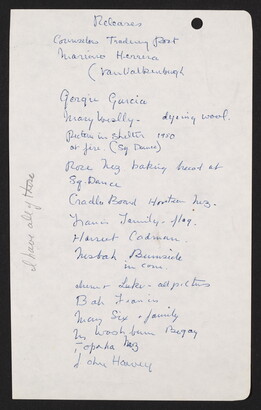 Releases
Counselors Trading Post
Mariano Herrera
(Van Valkenburgh
Georgie Garcia
Mary Weally - dyeing wool.
Picture in shelter 1950
at fire. (Sq Dance)
Rose Nez baking bread at
Sq. Dance
Cradle Board Hosteen Nez.
Francis Family - flag.
Harriet Cadman.
Nesbah Burnside
in corn.
Luke - all pictures
Bah Francis
Mary Six + family
Washburn
Tapaha Nez
John Harvey
I have all of these